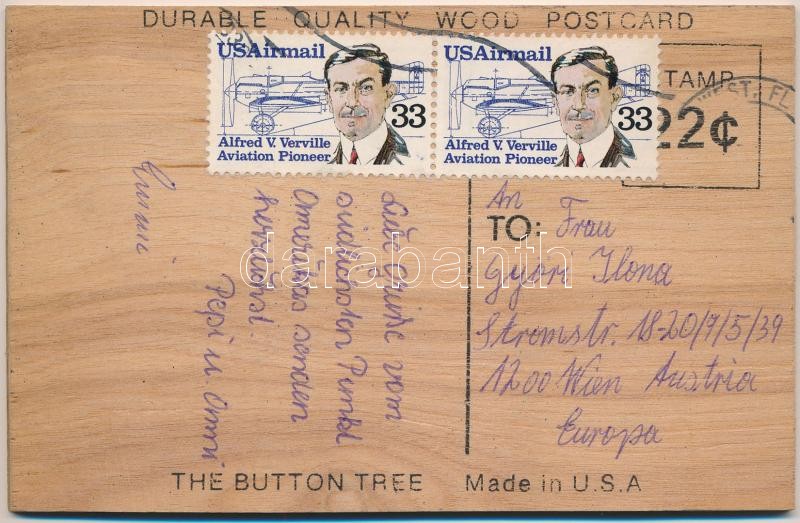 DURABLE QUALITY WOOD POSTCARD
USAirmail
33
Alfred V. Verville
Aviation Pioneer
USAirmail
33
Alfred V. Verville
Aviation Pioneer
STAMP
22¢
FL
Liebe Grüße vom
südlichsten Punkt
Amerikas senden
herzlichst
Pepi u. Omni
An
TO: Frau
Györi Ilona
Stromstr. 18-20/7/5/39
1200 Wien Austria
Europa
darabanth
THE BUTTON TREE Made in U.S.A